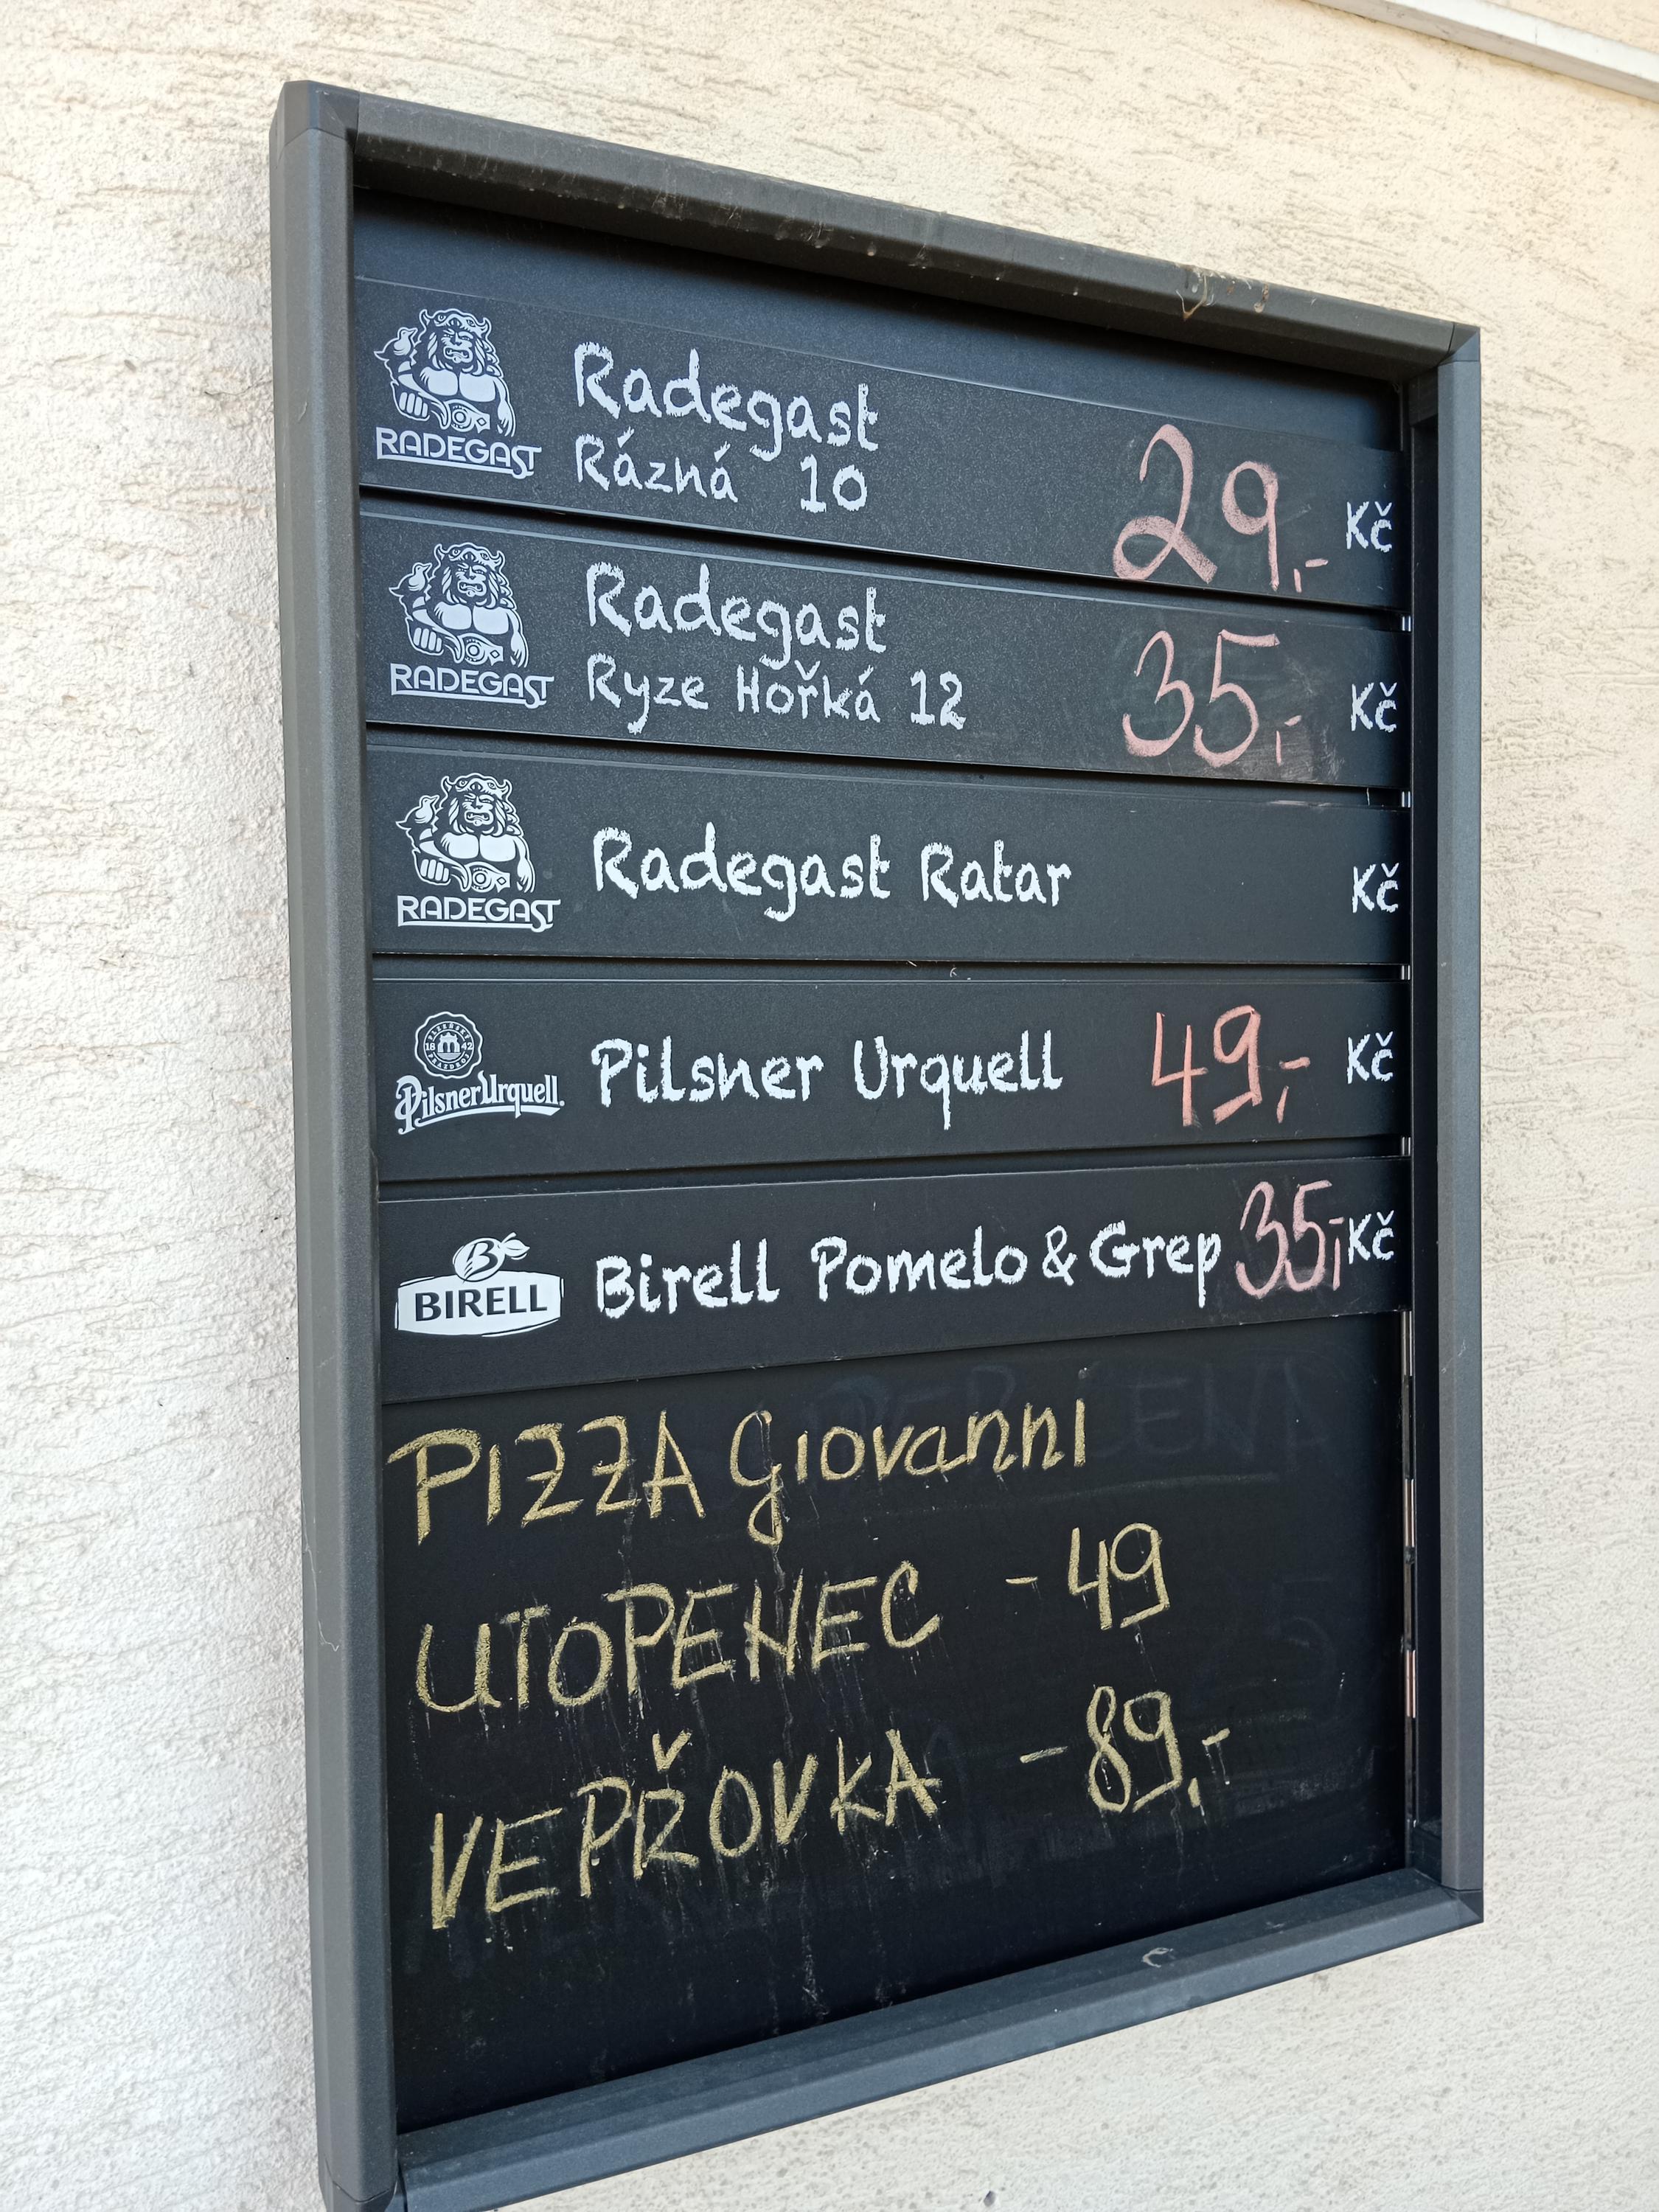 RADEGAST
Radegast
Rázná 10
29,- Kč
RADEGAST
Radegast
Ryze Hořká 12
35,- Kč
RADEGAST
Radegast Ratar Kč
PLZEŇSKÝ PRAZDROJ
1842
Pilsner Urquell
Pilsner Urquell 49,- Kč
B
BIRELL
Birell Pomelo & Grep 35,- Kč
PIZZA Giovanni
UTOPENEC - 49
VEPŘOVKA - 89,-